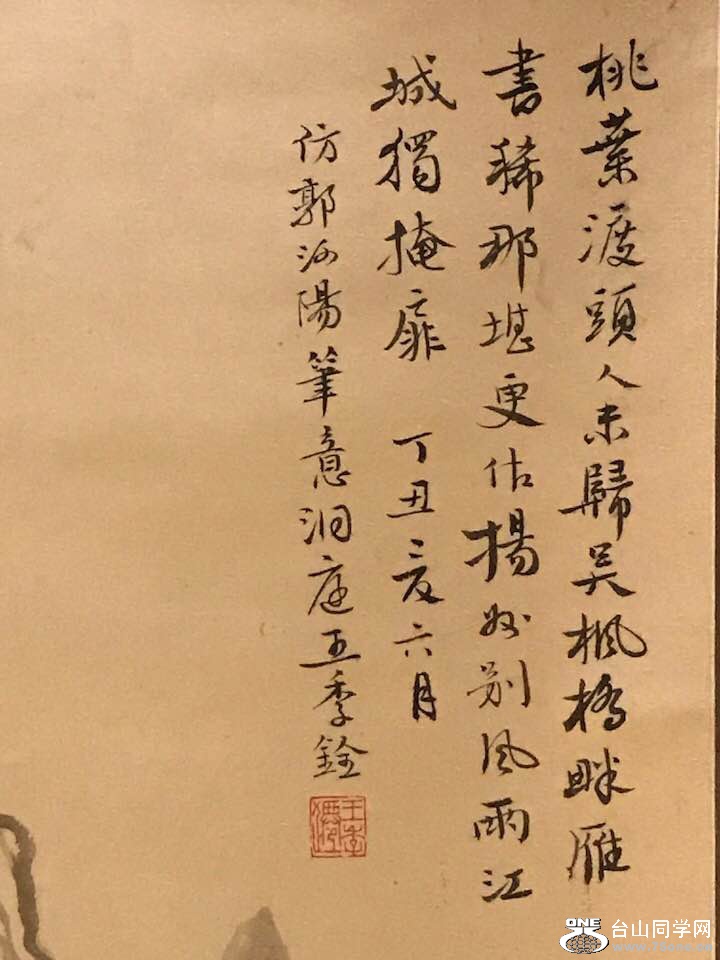 桃葉渡頭人未歸吳楓橋畔雁
書稀那堪更作揚州別風雨江
城獨掩扉 丁丑夏六月
仿郭河陽筆意洞庭王季銓
ONE 台山同学网